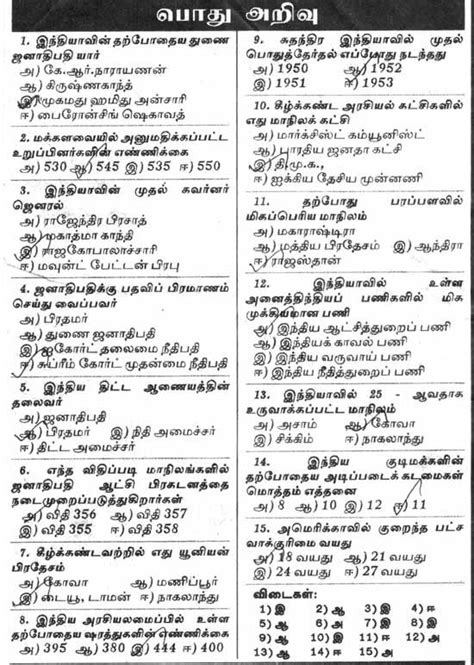 பொது அறிவு
1. இந்தியாவின் தற்போதைய துணை
ஜனாதிபதி யார்
அ) கே.ஆர்.நாராயணன்
ஆ) கிருஷ்ணகாந்த்
இ) முகமது ஹமீது அன்சாரி
ஈ) பைரோன்சிங் ஷெகாவத்
2. மக்களவையில் அனுமதிக்கப்பட்ட
உறுப்பினர்களின் எண்ணிக்கை
அ) 530 ஆ) 545 இ) 535 ஈ) 550
3. இந்தியாவின் முதல் கவர்னர்
ஜெனரல்
அ) ராஜேந்திர பிரசாத்
ஆ) மகாத்மா காந்தி
இ) ராஜகோபாலாச்சாரி
ஈ) மவுன்ட் பேட்டன் பிரபு
4. ஜனாதிபதிக்கு பதவிப் பிரமாணம்
செய்து வைப்பவர்
அ) பிரதமர்
ஆ) துணை ஜனாதிபதி
இ) ஐகோர்ட் தலைமை நீதிபதி
ஈ) சுப்ரீம் கோர்ட் முதன்மை நீதிபதி
5. இந்திய திட்ட ஆணையத்தின்
தலைவர்
அ) ஜனாதிபதி
ஆ) பிரதமர் இ) நிதி அமைச்சர்
ஈ) திட்ட அமைச்சர்
6. எந்த விதிப்படி மாநிலங்களில்
ஜனாதிபதி ஆட்சி பிரகடனத்தை
நடைமுறைப்படுத்துகிறார்கள்
அ) விதி 356 ஆ) விதி 357
இ) விதி 355 ஈ) விதி 358
7. கீழ்க்கண்டவற்றில் எது யூனியன்
பிரதேசம்
அ) கோவா ஆ) மணிப்பூர்
இ) டையூ, டாமன் ஈ) நாகலாந்து
8. இந்திய அரசியலமைப்பில் உள்ள
தற்போதைய ஷரத்துகளின் எண்ணிக்கை
அ) 395 ஆ) 380 இ) 444 ஈ) 400
9. சுதந்திர இந்தியாவில் முதல்
பொதுத்தேர்தல் எப்போது நடந்தது
அ) 1950 ஆ) 1952
இ) 1951 ஈ) 1953
10. கீழ்க்கண்ட அரசியல் கட்சிகளில்
எது மாநிலக் கட்சி
அ) மார்க்சிஸ்ட் கம்யூனிஸ்ட்
ஆ) பாரதிய ஜனதா கட்சி
இ) தி.மு.க.,
ஈ) ஐக்கிய தேசிய முன்னணி
11. தற்போது பரப்பளவில்
மிகப்பெரிய மாநிலம்
அ) மகாராஷ்டிரா
ஆ) மத்திய பிரதேசம் இ) ஆந்திரா
ஈ) ராஜஸ்தான்
12. இந்தியாவில் உள்ள
அனைத்திந்தியப் பணிகளில் மிக
முக்கியமான பணி
அ) இந்திய ஆட்சித்துறைப் பணி
ஆ) இந்தியக் காவல் பணி
இ) இந்திய வருவாய் பணி
ஈ) இந்திய நீதித்துறைப் பணி
13. இந்தியாவில் 25 - ஆவதாக
உருவாக்கப்பட்ட மாநிலம்
அ) அசாம் ஆ) கோவா
இ) சிக்கிம் ஈ) நாகலாந்து
14. இந்திய குடிமக்களின்
தற்போதைய அடிப்படைக் கடமைகள்
மொத்தம் எத்தனை
அ) 8 ஆ) 10 இ) 12 ஈ) 11
15. அமெரிக்காவில் குறைந்த பட்ச
வாக்குரிமை வயது
அ) 18 வயது ஆ) 21 வயது
இ) 24 வயது ஈ) 27 வயது
விடைகள்:
1) இ 2) ஆ 3) இ 4) ஈ
5) ஆ 6) அ 7) இ 8) இ
9) ஆ 10) இ 11) ஈ 12) அ
13) ஆ 14) ஈ 15) அ